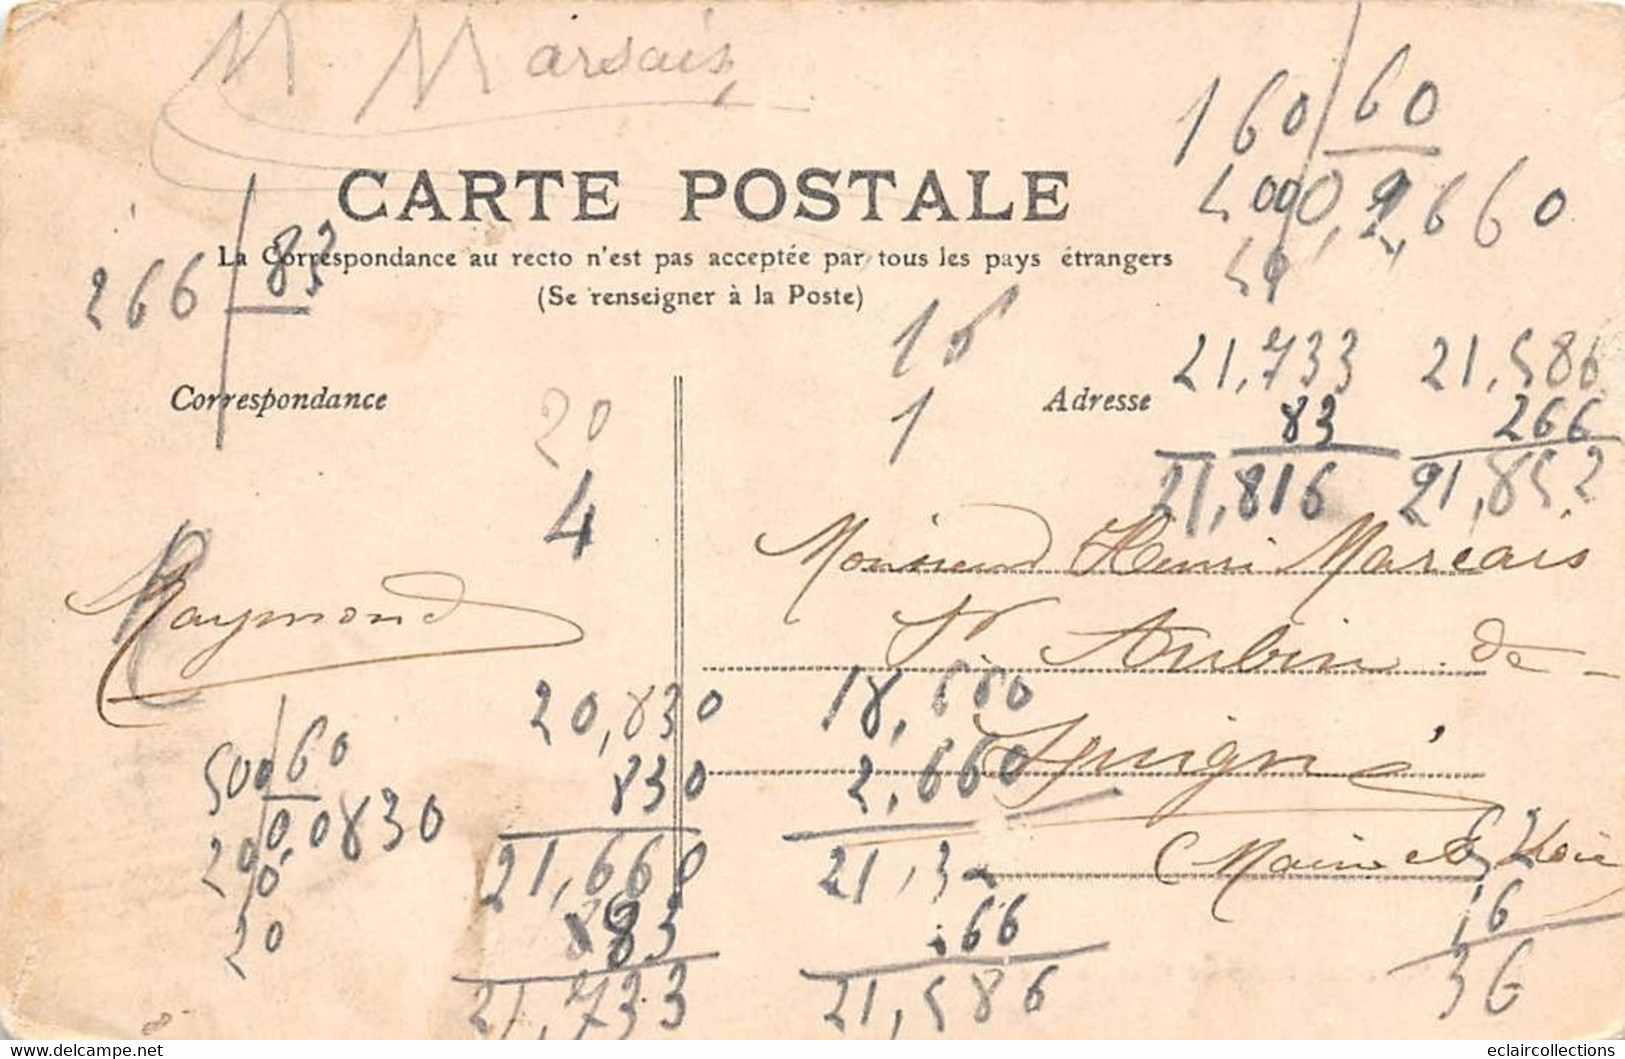 M Marsais
CARTE POSTALE
La Correspondance au recto n'est pas acceptée par tous les pays étrangers
(Se renseigner à la Poste)
160 60
400 0,2660
266 83
Correspondance
Adresse
20
4
1
21,733
83
21,816
21,586
266
21,852
Raymond
Monsieur Henri Marcais
St Aubin de
Luigné
(Maine et Loire
500 60
0,0830
200
20
20,830
830
21,660
83
21,733
18,660
2,660
21,3
266
21,586
52
16
36
eclaircollections